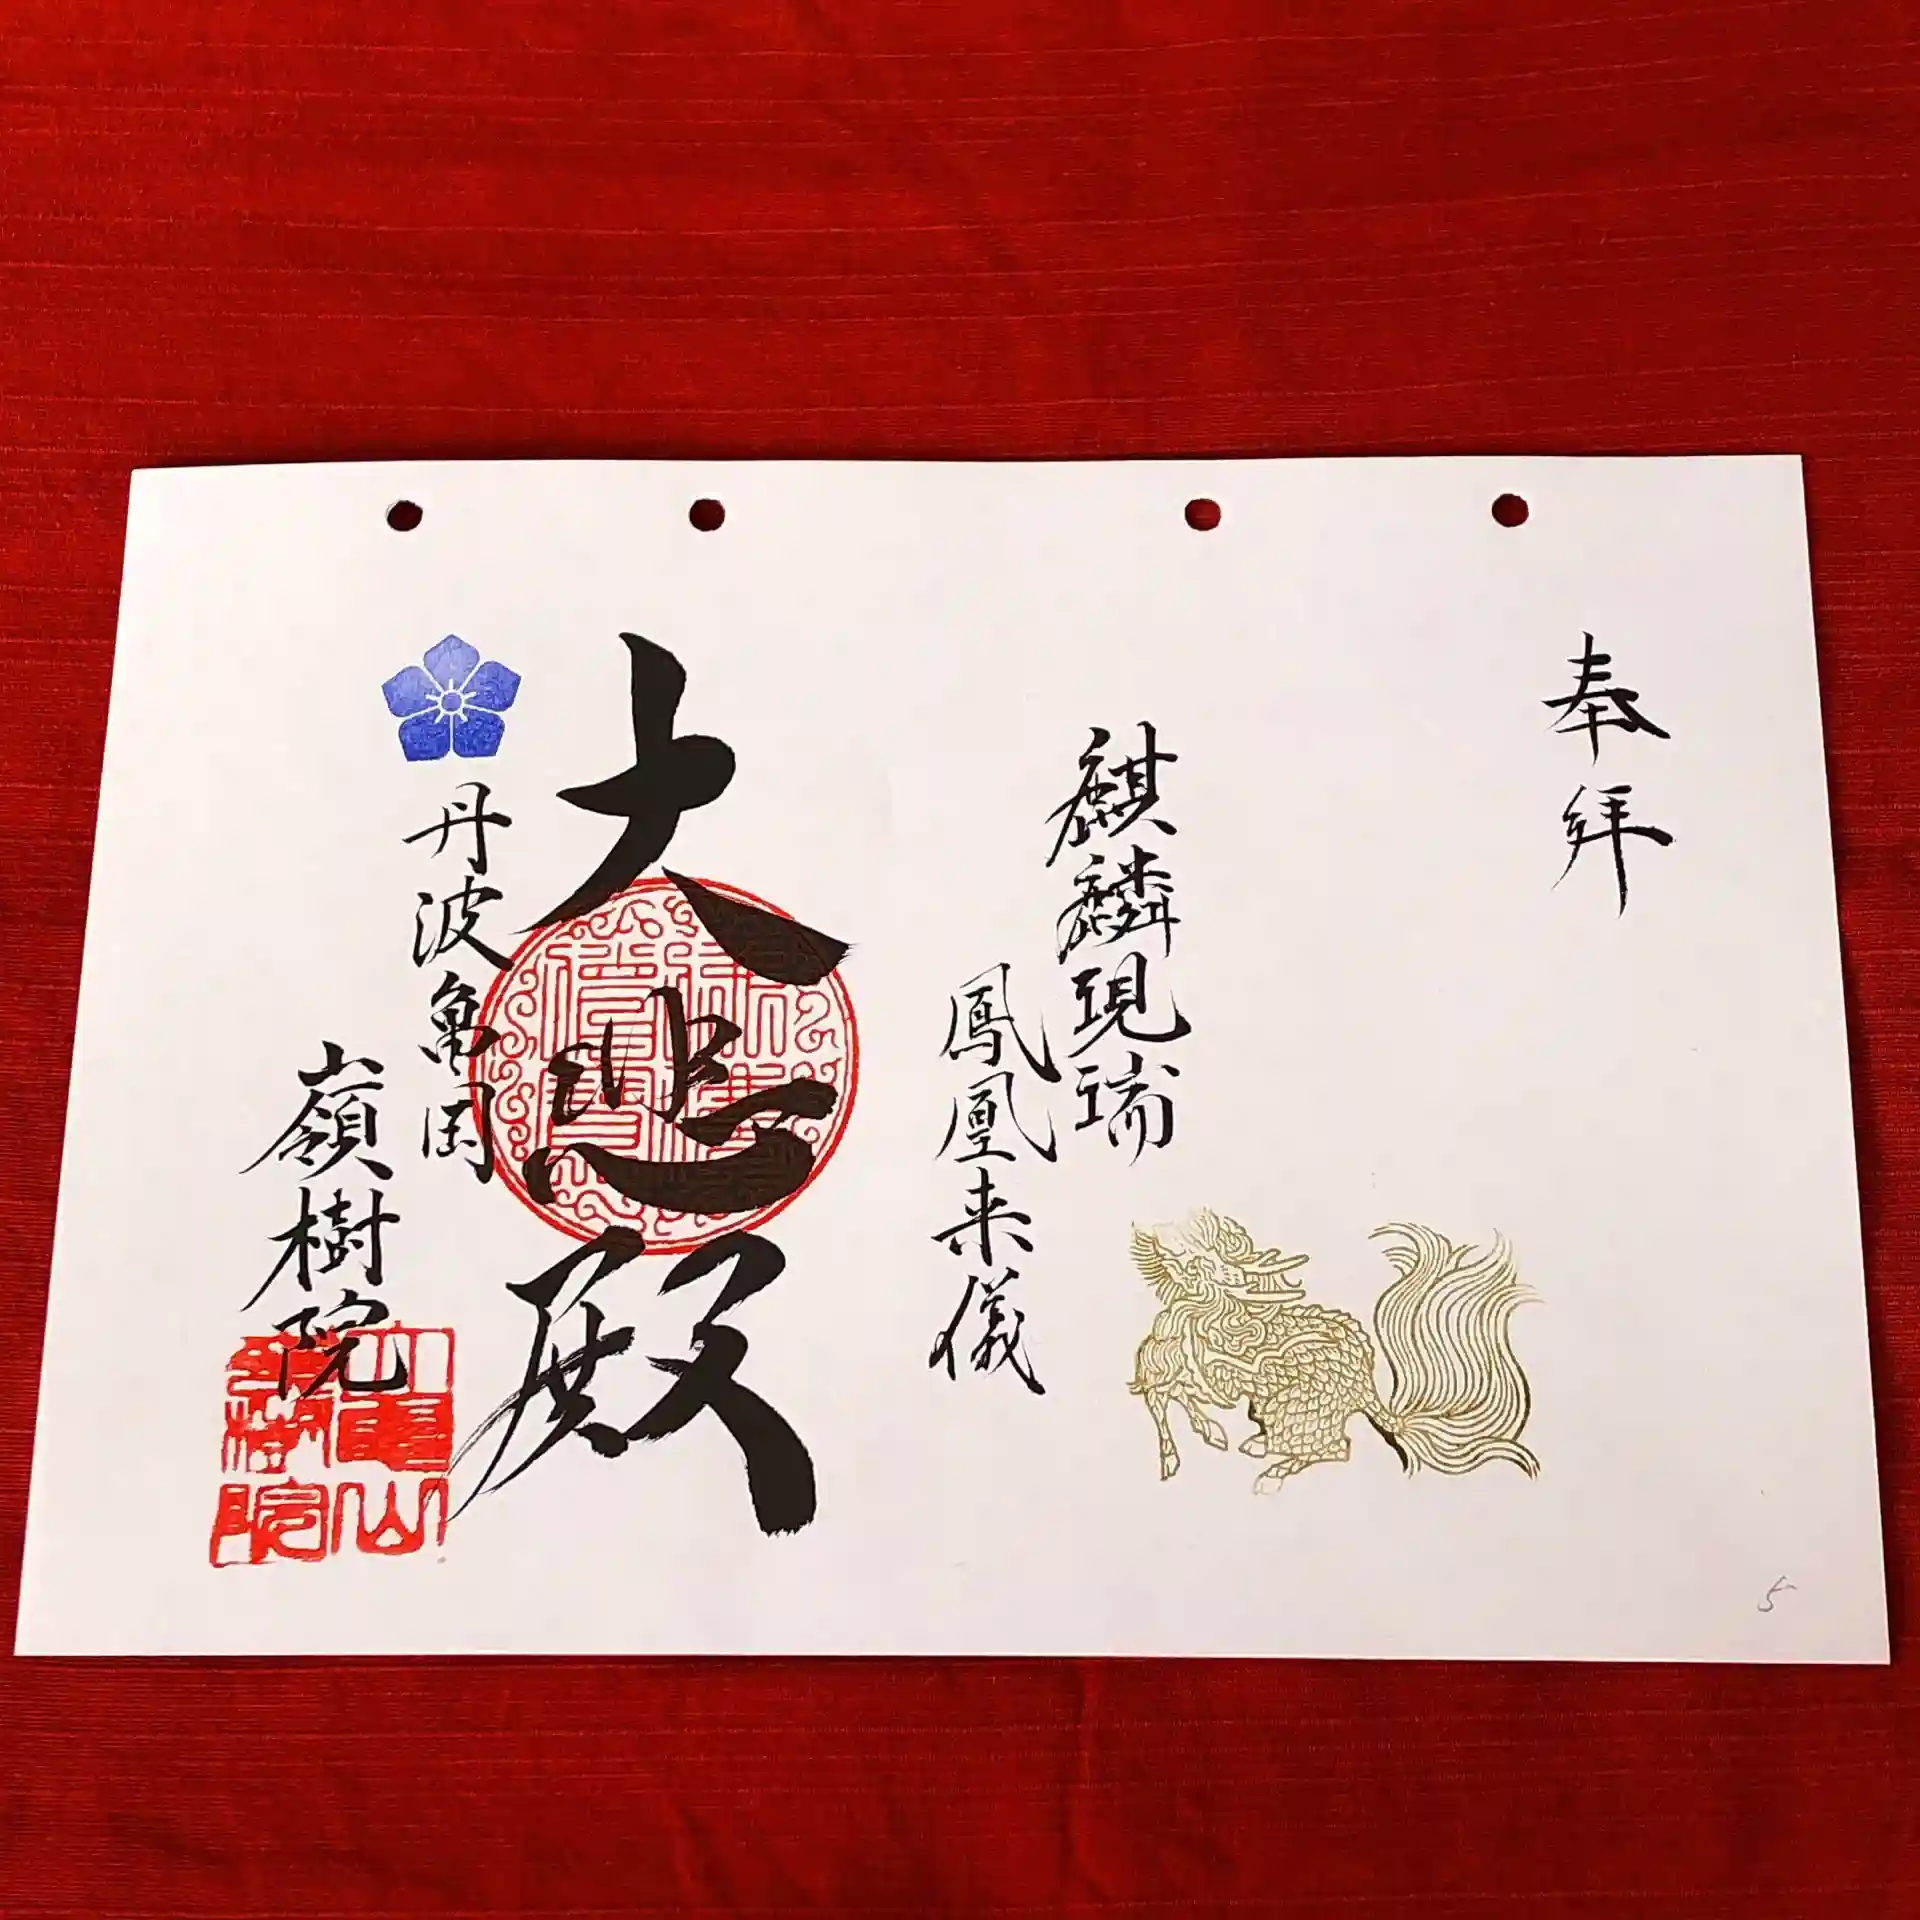 奉拜
麒麟現瑞
鳳凰来儀
大悲殿
丹波亀岡
嶺樹院
5